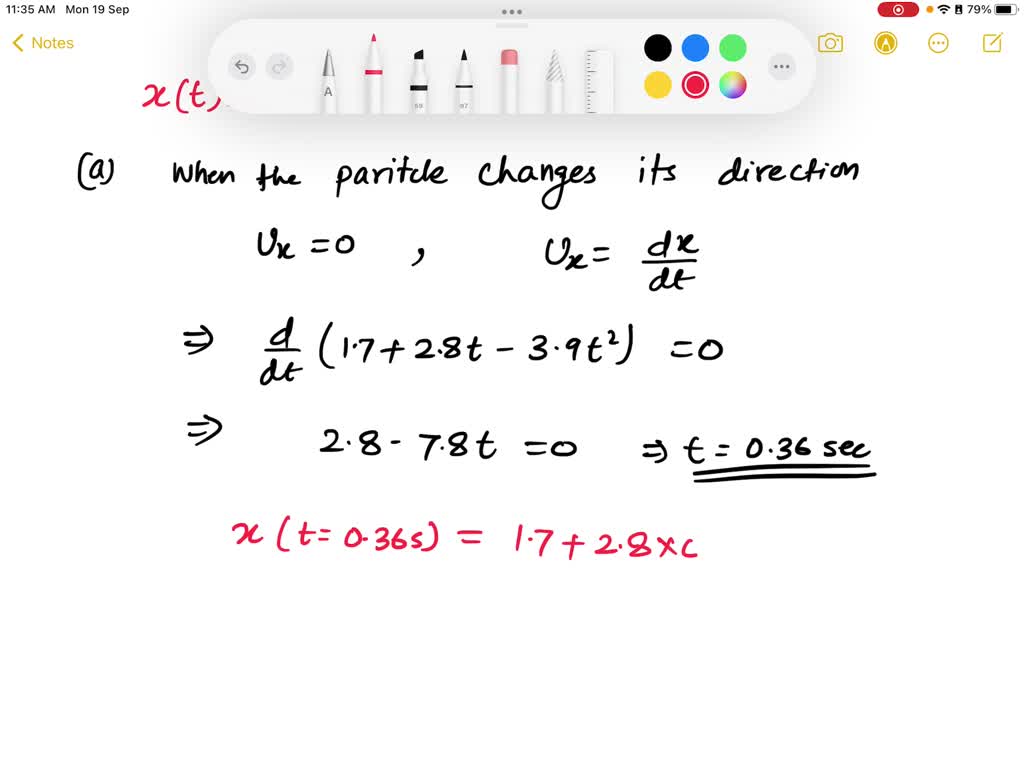 11:35 AM Mon 19 Sep
79%
Notes
A
59
97
x(t)
(a) When the paritcle changes its direction
Ux = 0 , Ux = dx/dt
⇒ d/dt (1.7 + 2.8t - 3.9t²) = 0
⇒ 2.8 - 7.8t = 0 ⇒ t = 0.36 sec
x(t = 0.36s) = 1.7 + 2.8 x c